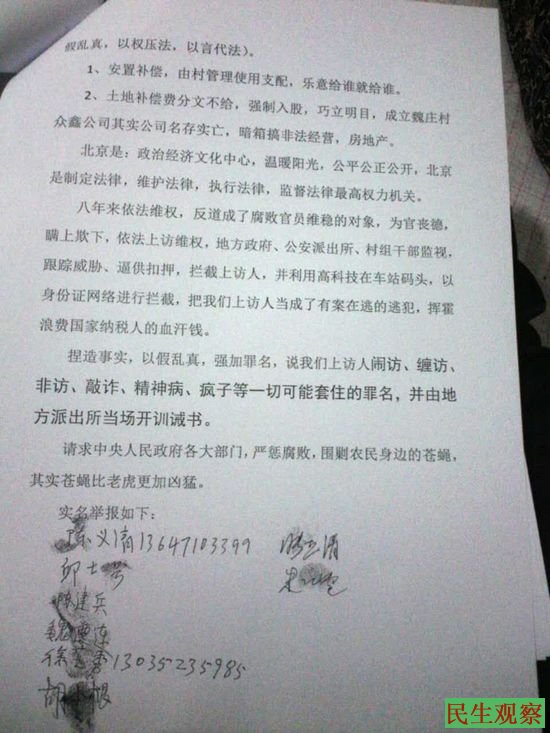 假乱真，以权压法，以言代法）。
1、安置补偿，由村管理使用支配，乐意给谁就给谁。
2、土地补偿费分文不给，强制入股，巧立明目，成立魏庄村
众鑫公司其实公司名存实亡，暗箱搞非法经营，房地产。
北京是：政治经济文化中心，温暖阳光，公平公正公开，北京
是制定法律，维护法律，执行法律，监督法律最高权力机关。
八年来依法维权，反道成了腐败官员维稳的对象，为官丧德，
瞒上欺下，依法上访维权，地方政府、公安派出所、村组干部监视，
跟踪威胁、逼供扣押，拦截上访人，并利用高科技在车站码头，以
身份证网络进行拦截，把我们上访人当成了有案在逃的逃犯，挥霍
浪费国家纳税人的血汗钱。
捏造事实，以假乱真，强加罪名，说我们上访人闹访、缠访、
非访、敲诈、精神病、疯子等一切可能套住的罪名，并由地
方派出所当场开训诫书。
请求中央人民政府各大部门，严惩腐败，围剿农民身边的苍蝇，
其实苍蝇比老虎更加凶猛。
实名举报如下：
义清13647103399
邱士
陈建兵
连
徐 13035235985
胡 根
民生观察